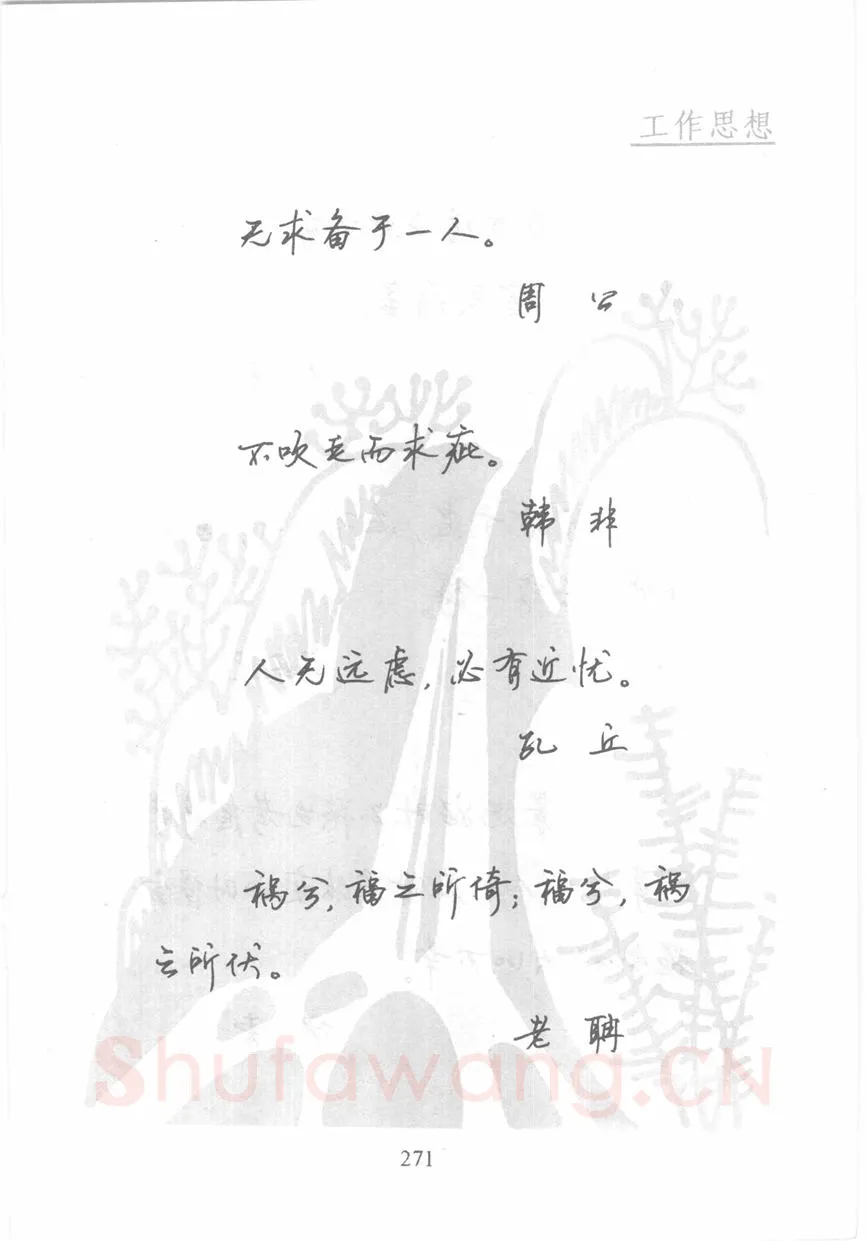 工作思想
无求备于一人。
周 公
不吹毛而求疵。
韩 非
人无远虑，必有近忧。
孔 丘
祸兮，福之所倚；福兮，祸
之所伏。
老 聃
Shufawang.CN
271